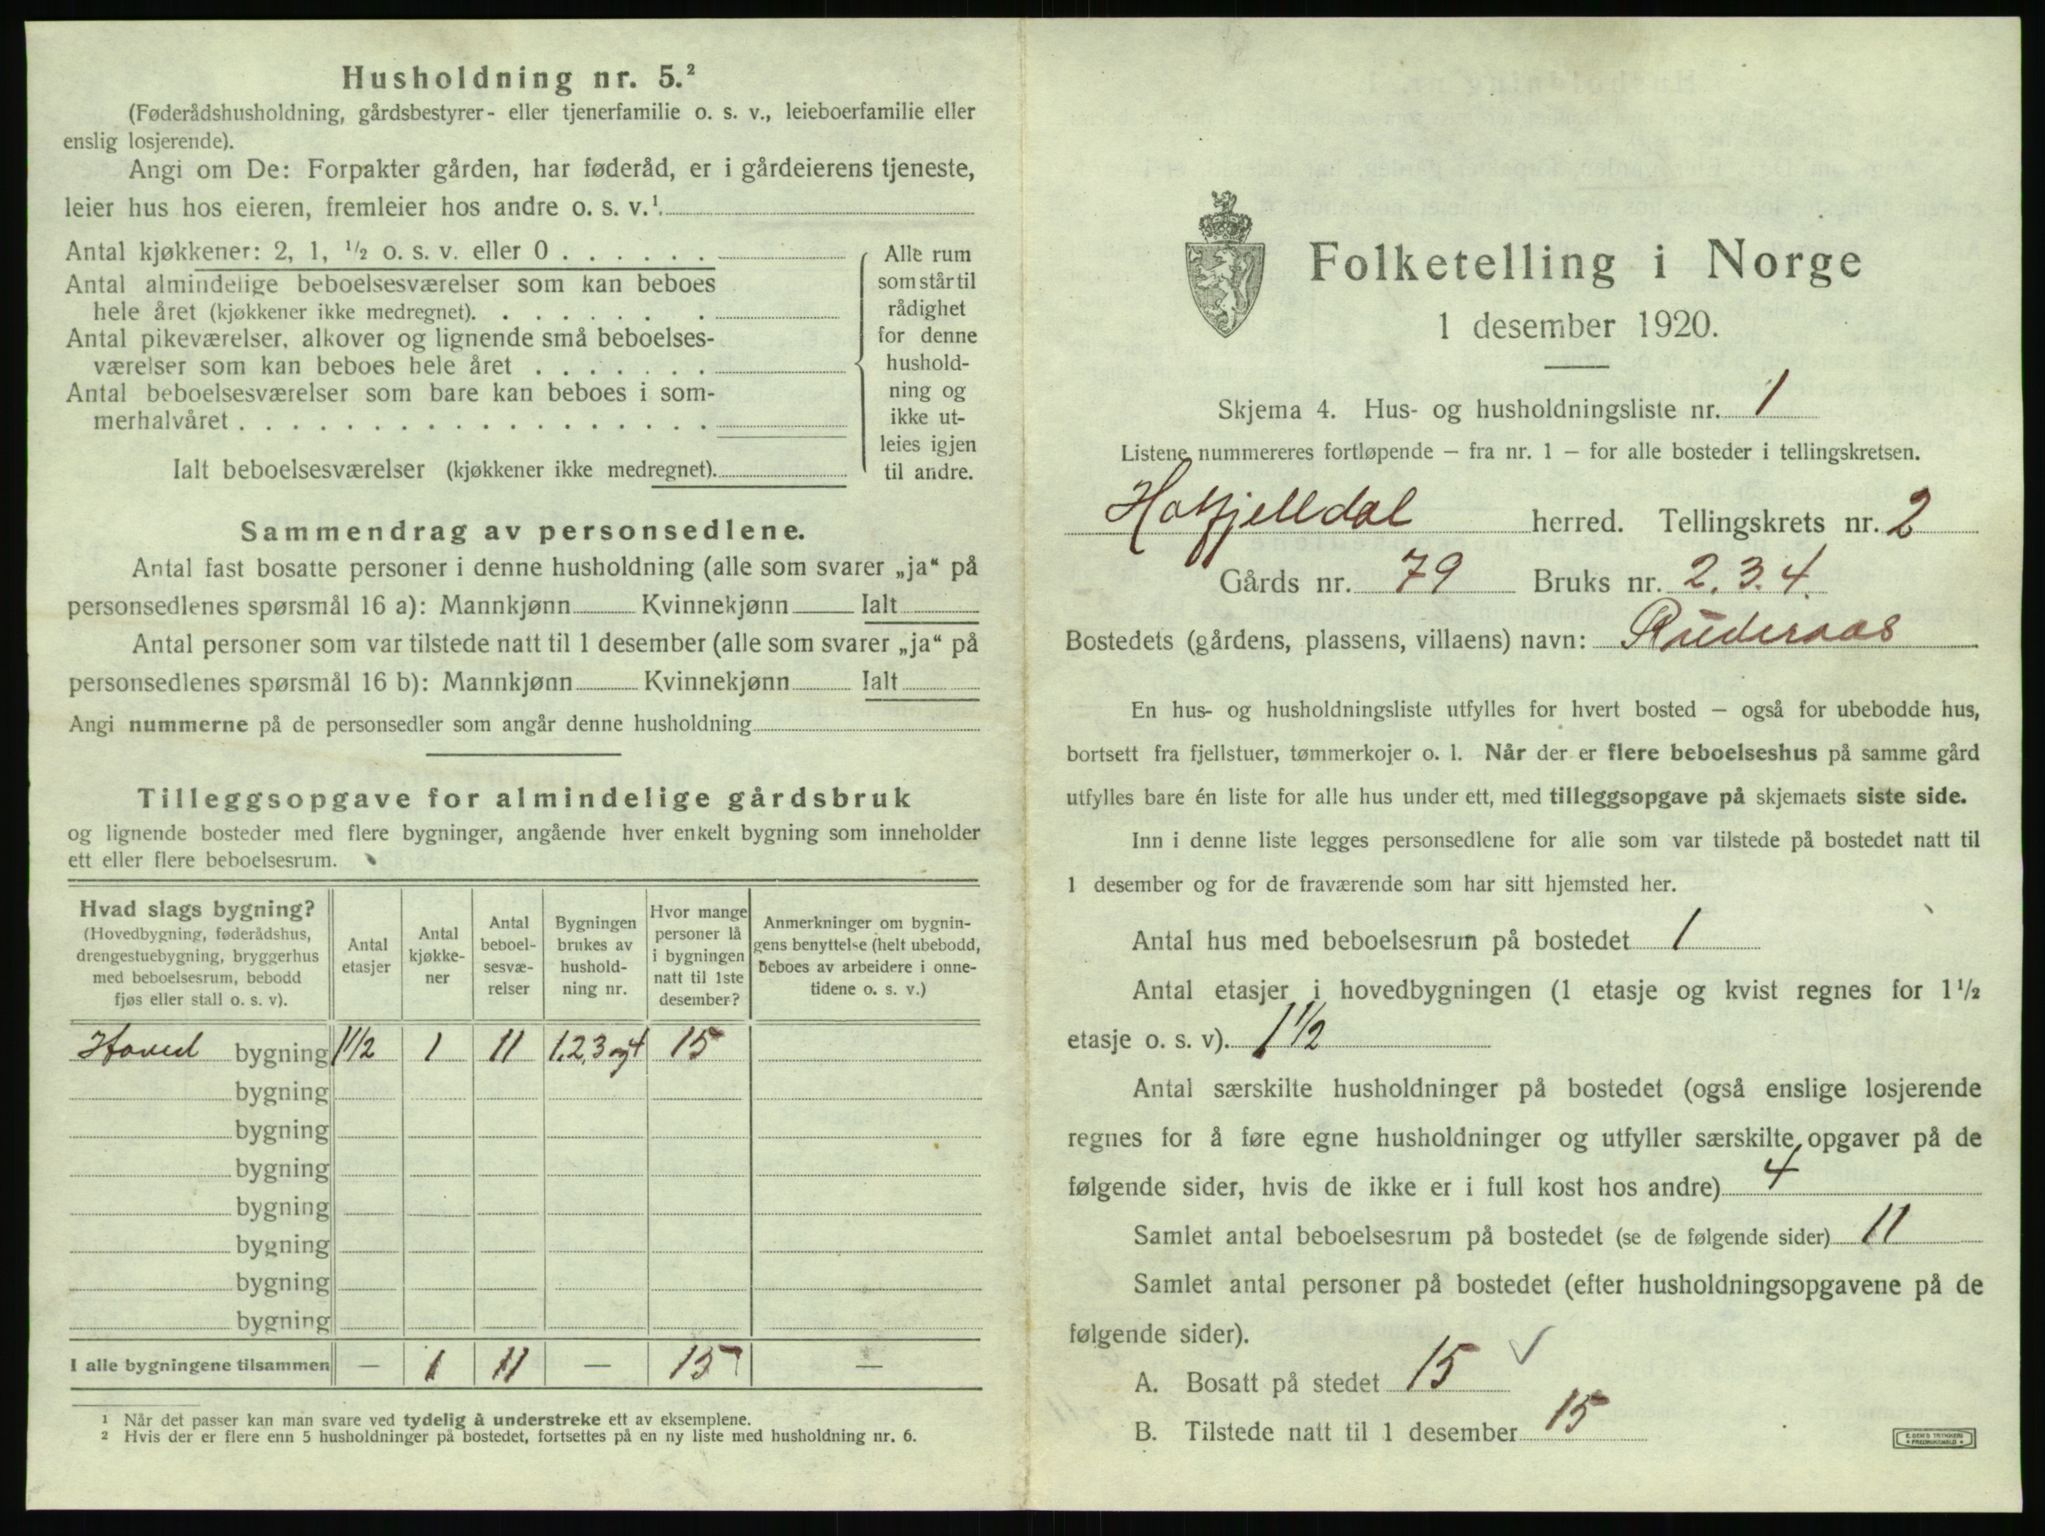 Husholdning nr. 5.²
(Føderådshusholdning, gårdsbestyrer- eller tjenerfamilie o. s. v., leieboerfamilie eller
enslig losjerende).
Angi om De: Forpakter gården, har føderåd, er i gårdeierens tjeneste,
leier hus hos eieren, fremleier hos andre o. s. v.¹
Antal kjøkkener: 2, 1, ½ o. s. v. eller 0 . . . . . .
Antal almindelige beboelsesværelser som kan beboes
hele året (kjøkkener ikke medregnet). . . . . . . .
Antal pikeværelser, alkover og lignende små beboelses-
værelser som kan beboes hele året . . . . . . .
Antal beboelsesværelser som bare kan beboes i som-
merhalvåret . . . . . . . . . . . . . . . . . .
Ialt beboelsesværelser (kjøkkener ikke medregnet).
Alle rum
som står til
rådighet
for denne
hushold-
ning og
ikke ut-
leies igjen
til andre.
Sammendrag av personsedlene.
Antal fast bosatte personer i denne husholdning (alle som svarer „ja“ på
personsedlenes spørsmål 16 a): Mannkjønn Kvinnekjønn Ialt
Antal personer som var tilstede natt til 1 desember (alle som svarer „ja“ på
personsedlenes spørsmål 16 b): Mannkjønn Kvinnekjønn Ialt
Angi nummerne på de personsedler som angår denne husholdning
Tilleggsopgave for almindelige gårdsbruk
og lignende bosteder med flere bygninger, angående hver enkelt bygning som inneholder
ett eller flere beboelsesrum.
Hvad slags bygning?
(Hovedbygning, føderådshus,
drengestuebygning, bryggerhus
med beboelsesrum, bebodd
fjøs eller stall o. s. v).
Antal
etasjer
Antal
kjøkke-
ner
Antal
beboel-
sesvæ-
relser
Bygningen
brukes av
hushold-
ning nr.
Hvor mange
personer lå
i bygningen
natt til 1ste
desember?
Anmerkninger om bygnin-
gens benyttelse (helt ubebodd,
beboes av arbeidere i onne-
tidene o. s. v.)
Hoved bygning 1½ 1 11 1,2,3 og 4 15
bygning
bygning
bygning
bygning
bygning
bygning
bygning
I alle bygningene tilsammen — 1 11 — 15 —
¹ Når det passer kan man svare ved tydelig å understreke ett av eksemplene.
² Hvis der er flere enn 5 husholdninger på bostedet, fortsettes på en ny liste med husholdning nr. 6.
Folketelling i Norge
1 desember 1920.
Skjema 4. Hus- og husholdningsliste nr. 1
Listene nummereres fortløpende — fra nr. 1 — for alle bosteder i tellingskretsen.
Hatfjelldal herred. Tellingskrets nr. 2
Gårds nr. 79 Bruks nr. 2. 3. 4.
Bostedets (gårdens, plassens, villaens) navn: Rüderaas
En hus- og husholdningsliste utfylles for hvert bosted — også for ubebodde hus,
bortsett fra fjellstuer, tømmerkojer o. l. Når der er flere beboelseshus på samme gård
utfylles bare én liste for alle hus under ett, med tilleggsopgave på skjemaets siste side.
Inn i denne liste legges personsedlene for alle som var tilstede på bostedet natt til
1 desember og for de fraværende som har sitt hjemsted her.
Antal hus med beboelsesrum på bostedet 1
Antal etasjer i hovedbygningen (1 etasje og kvist regnes for 1½
etasje o. s. v). 1½
Antal særskilte husholdninger på bostedet (også enslige losjerende
regnes for å føre egne husholdninger og utfyller særskilte opgaver på de
følgende sider, hvis de ikke er i full kost hos andre) 4
Samlet antal beboelsesrum på bostedet (se de følgende sider) 11
Samlet antal personer på bostedet (efter husholdningsopgavene på de
følgende sider).
A. Bosatt på stedet 15 ✓
B. Tilstede natt til 1 desember 15